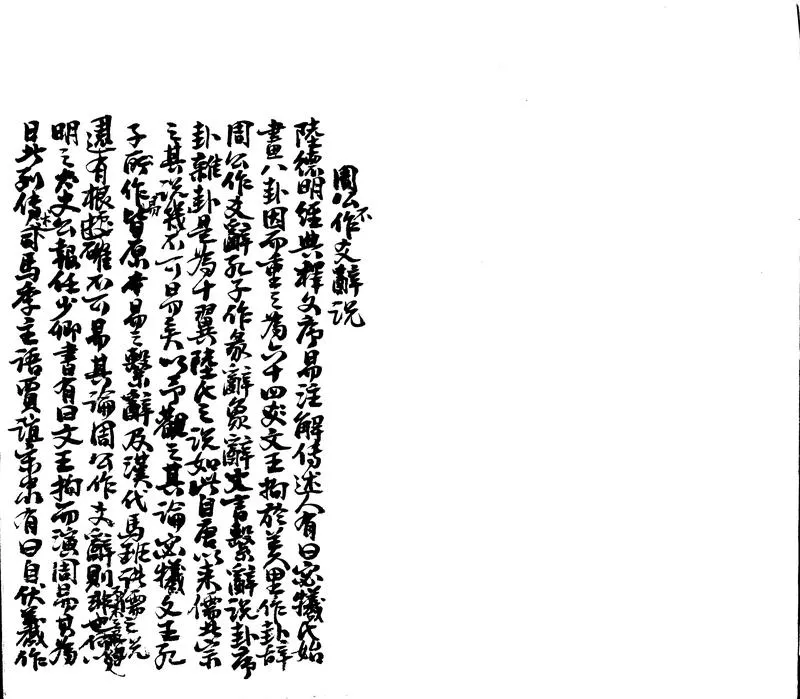 周公不作爻辭说
陸德明經典釋文序易注解傳述人有曰宓犧氏始
畫八卦因而重之為六十四爻文王拘於羑里作卦辞
周公作爻辭孔子作彖辭象辭文言繫辭说卦序
卦雜卦是為十翼陸氏之说如此自唐以来儒者宗
之其说幾不可易矣以予觀之其論宓犧文王孔
子所作皆原本易之繫辭及漢代馬班諸儒之说
還有根據確不可易其論周公作爻辭則非也何以
明之太史公報任少卿書有曰文王拘而演周易其為
日者列傳述司馬季主語賈誼宋忠有曰自伏羲作